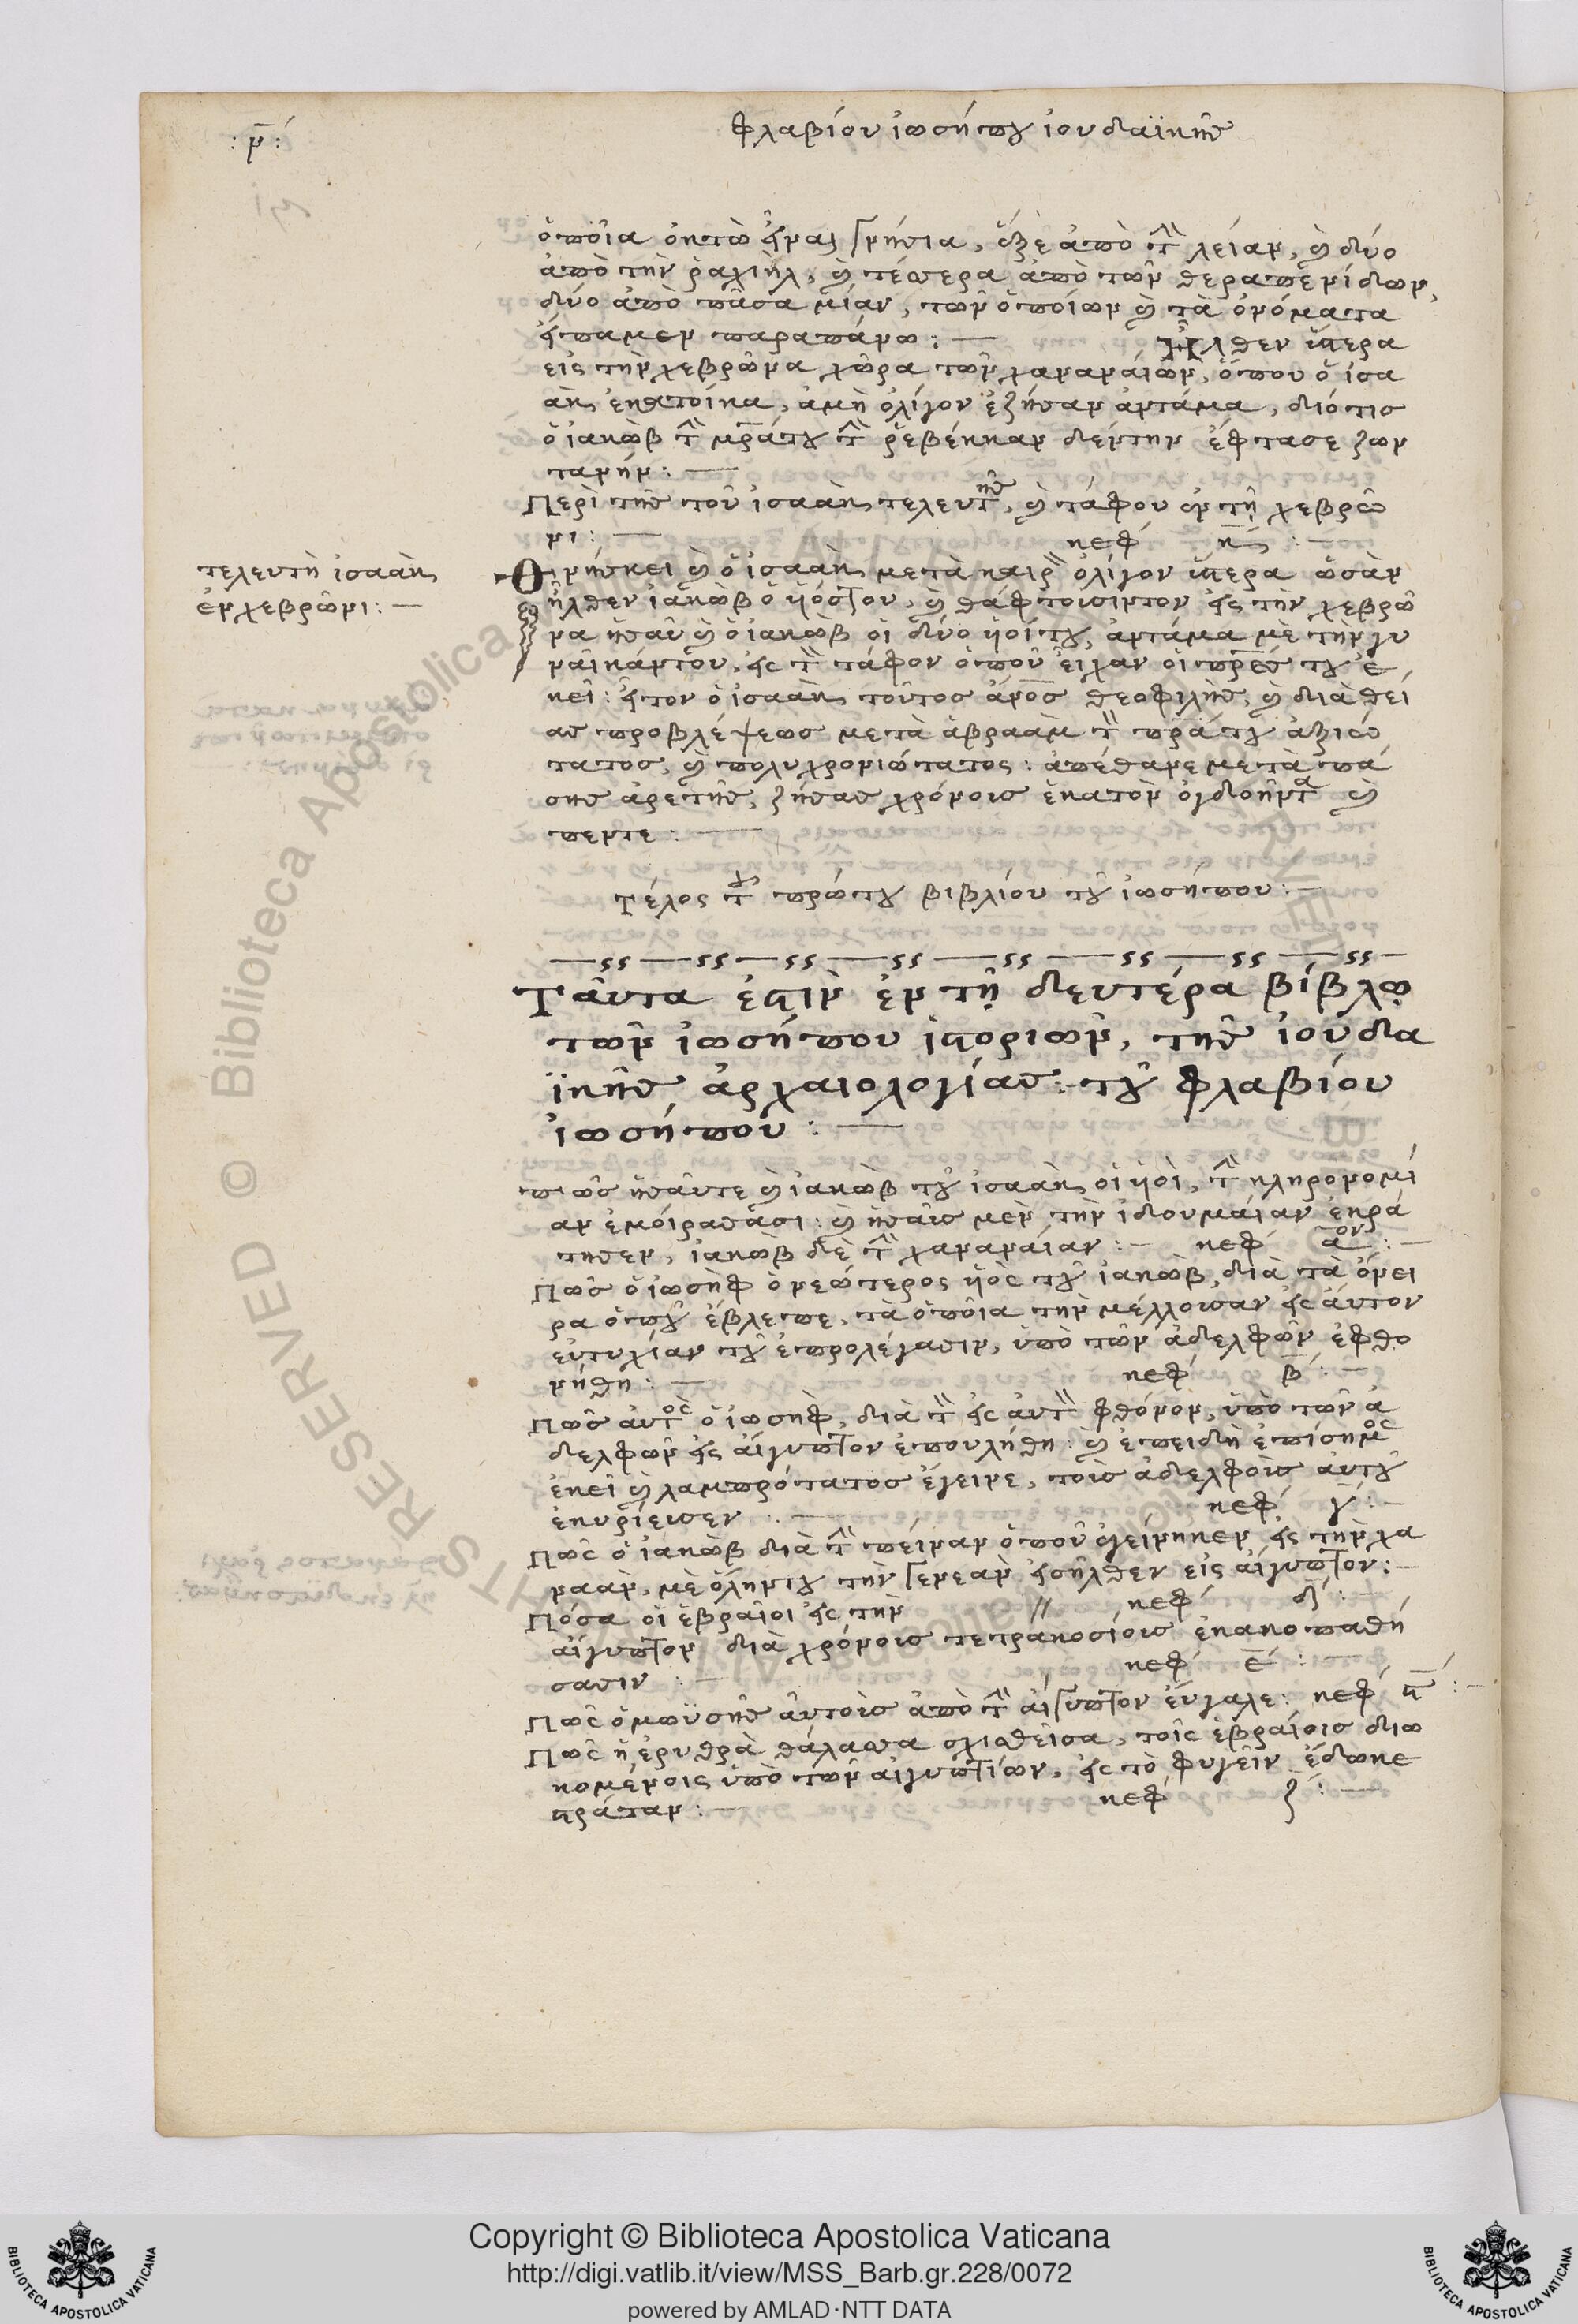 : ρ̅ :
φλαβίου ἰωσήπου ἰουδαϊκῆς
ὁποῖα ὀκτὼ εἶναι γνήσια, ἕξε ἀπὸ τὴν λείαν, καὶ δύο
ἀπὸ τὴν ῥαχιὴλ, καὶ τέσσερα ἀπὸ τῶν θεραπενίδων,
δύο ἀπὸ πᾶσα μίαν, τῶν ὁποίων καὶ τὰ ὀνόματα
εἴπαμεν παραπάνω : — ἦλθεν ὕστερα
εἰς τὴν χεβρῶνα χώρα τῶν χαναναίων, ὅπου ὁ ἰσα
ὰκ ἐκατοίκα, ἀμὴ ὀλίγον ἐζήσαν ἀντάμα, διότις
ὁ ἰακὼβ τὴν μητέρα του τὴν ῥεβέκκαν δέντην ἔφτασε ζων
τανήν : —
Περὶ τῆς τοῦ ἰσαὰκ τελευτῆς, καὶ τάφου ἐν τῇ χεβρῶ
νι : — κεφ κ̅ς : —
τελευτὴ ἰσαὰκ
ἐν χεβρῶνι : —
Θνήσκει καὶ ὁ ἰσαὰκ μετὰ καιρὸν ὀλίγον ὕστερα ὡσὰν
ἦλθεν ἰακὼβ ὁ υἱόστου, καὶ θάφτουσίντον εἰς τὴν χεβρῶ
να ἠσαῦ καὶ ὁ ἰακὼβ οἱ δύο υἱοίτου, ἀντάμα μὲ τὴν γυ
ναῖκάντου, εἰς τὸν τάφον ὁποῦ εἶχαν οἱ πατέρες του ἐ
κεῖ : ἦτον ὁ ἰσαὰκ τοῦτος ἄνθρωπος θεοφιλὴς, καὶ διὰ θεί
ας προβλέψεως μετὰ ἀβραὰμ τὸν πατέρα του ἀξιώ
τατος, καὶ πολυχρονιώτατος : ἀπέθανε μετὰ πά
σης ἀρετῆς, ζήσας χρόνους ἑκατὸν ὀγδοῆντα καὶ
πέντε : —
Τέλος τοῦ πρώτου βιβλίου τοῦ ἰωσήπου : —
Ταῦτα ἐστὶν ἐν τῇ δευτέρα βίβλῳ
τῶν ἰωσήπου ἱστοριῶν, τῆς ἰουδα
ϊκῆς ἀρχαιολογίας : τοῦ φλαβίου
ἰωσήπου : —
πῶς ἠσαῦτε καὶ ἰακὼβ τοῦ ἰσαὰκ οἱ υἱοὶ, τὴν κληρονομί
αν ἐμοίρασασι : καὶ ἠσαῦς μὲν τὴν ἰδουμαίαν ἐκρά
τησεν, ἰακὼβ δὲ τὴν χαναναίαν : — κεφ α̅ον : —
Πῶς ὁ ἰωσὴφ ὁ νεώτερος υἱὸς τοῦ ἰακὼβ, διὰ τὰ ὀνεί
ρα ὁποῦ ἔβλεπε, τὰ ὁποῖα τὴν μέλλουσαν εἰς αὐτον
εὐτυχίαν τοῦ ἐπρολέγασιν, ὑπὸ τῶν ἀδελφῶν ἐφθο
νήθη : — κεφ β̅ : —
Πῶς αὐτὸς ὁ ἰωσὴφ, διὰ τὸν εἰς αὐτὸν φθόνον, ὑπὸ τῶν ἀ
δελφῶν εἰς αἴγυπτον ἐπουλήθη : καὶ ἐπειδὴ ἐπίσημος
ἐκεῖ καὶ λαμπρότατος ἔγεινε, τοῖς ἀδελφοῖς αὐτοῦ
ἐκυρίευσεν : — κεφ γ̅ : —
Πῶς ὁ ἰακὼβ διὰ τὴν πεῖναν ὁποῦ ἐγείνηκεν εἰς τὴν χα
ναὰν, μὲ ὅληντου τὴν γενεὰν εἰσῆλθεν εἰς αἴγυπτον : —
Πόσα οἱ ἑβραῖοι εἰς τὴν // κεφ δ̅ : —
αἴγυπτον διὰ χρόνους τετρακοσίους ἐκακοπαθή
σασιν : — κεφ ε̅ : —
Πῶς ὁ μωϋσῆς αὐτοὺς ἀπὸ τὴν αἴγυπτον εὔγαλε : κεφ ϛ̅ : —
Πῶς ἡ ἐρυθρὰ θάλασσα σχισθεῖσα, τοῖς ἑβραίοις διω
κομένοις ὑπὸ τῶν αἰγυπτίων, εἰς τὸ φυγεῖν ἔδωκε
στράταν : — κεφ ζ : —
Copyright © Biblioteca Apostolica Vaticana
http://digi.vatlib.it/view/MSS_Barb.gr.228/0072
powered by AMLAD·NTT DATA